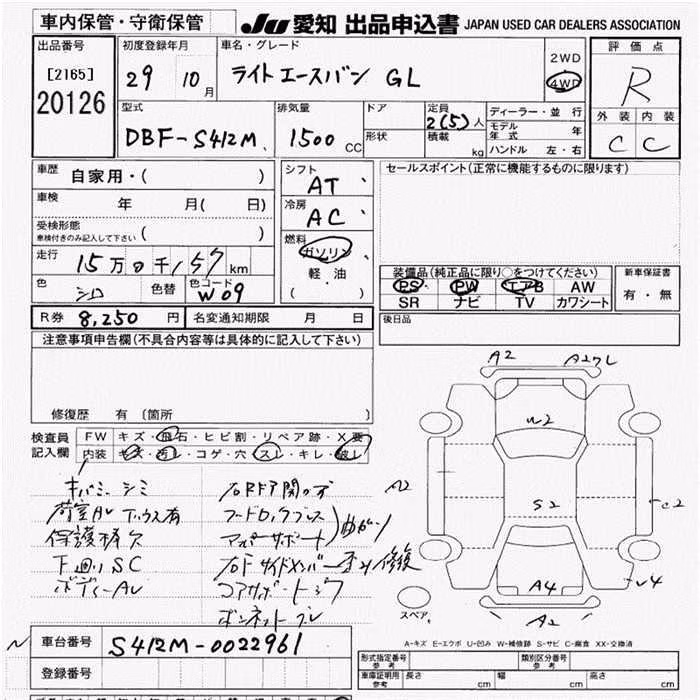 車内保管・守衛保管
JU 愛知 出品申込書 JAPAN USED CAR DEALERS ASSOCIATION
出品番号
[2165]
20126
初度登録年月
29 10 月
車名・グレード
ライトエースバン GL
2WD
4WD
評価点
R
外装 内装
C C
型式
DBF-S412M
排気量
1500 CC
ドア
形状
定員
2(5)人
積載
kg
ディーラー・並行
モデル年式 年
ハンドル 左・右
車歴
自家用・( )
車検
年 月( 日)
受検形態
車検付きのみ記入して下さい ( )
走行
15万0千157 km
色
シロ
色替
色コード
W09
シフト
AT
冷房
AC
燃料
ガソリン
軽・油
( )
セールスポイント(正常に機能するものに限ります)
装備品(純正品に限り○をつけてください)
PS PW エアB AW
SR ナビ TV カワシート
新車保証書
有・無
R券 8,250 円
名変通知期限 月 日
後日品
注意事項申告欄(不具合内容等は具体的に記入して下さい)
修復歴 有 〔箇所 〕
検査員
記入欄
FW キズ・飛石・ヒビ割・リペア跡・X要
内装 キズ・汚レ・コゲ・穴・スレ・キレ・破レ
キバミ シミ
荷室AU
保護棒欠
下廻りSC
ボディーAU
フードロックブレス
コアサポート
ボンネット
A2 A2 L
W2
A2
S2
C2
A4
U4
A2
スペア
A-キズ E-エクボ U-凹み W-補修跡 S-サビ C-腐食 XX-交換済
車台番号
S412M-0022961
登録番号
形式指定番号
参考
類別区分番号
参考
車庫証明用
参考
長さ cm 幅 cm 高さ cm